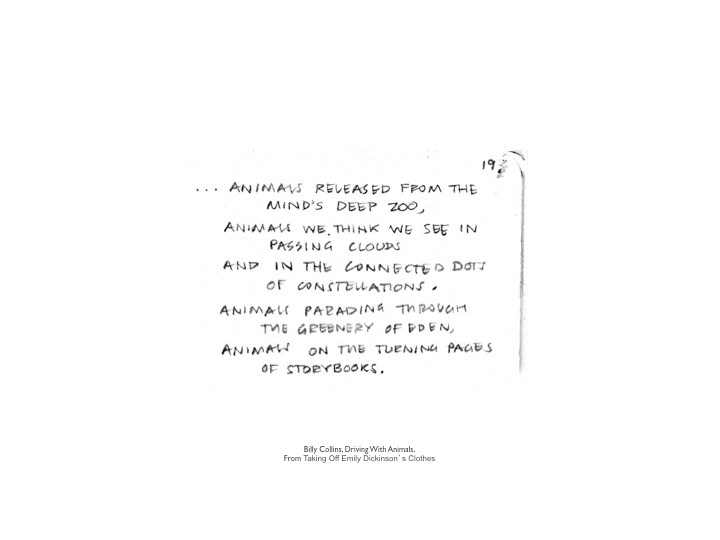 19
... ANIMALS RELEASED FROM THE
MIND'S DEEP ZOO,
ANIMALS WE THINK WE SEE IN
PASSING CLOUDS
AND IN THE CONNECTED DOTS
OF CONSTELLATIONS.
ANIMALS PARADING THROUGH
THE GREENERY OF EDEN,
ANIMALS ON THE TURNING PAGES
OF STORYBOOKS.
Billy Collins, Driving With Animals,
From Taking Off Emily Dickinson's Clothes